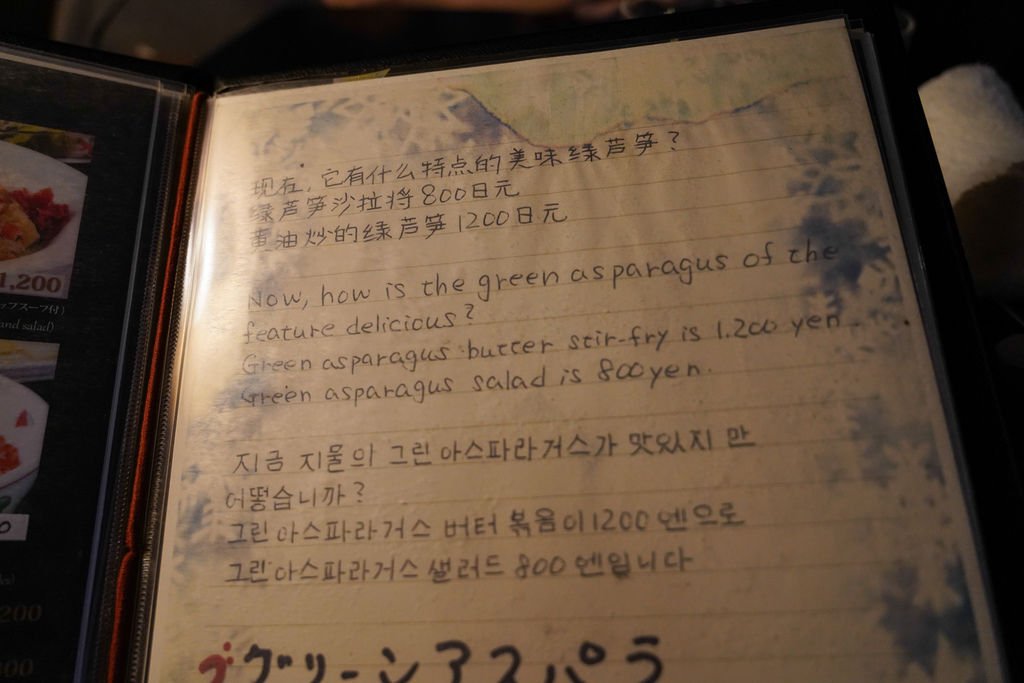 1,200
ップスープ付)
and salad)
200
现在，它有什么特点的美味绿芦笋？
绿芦笋沙拉将800日元
黄油炒的绿芦笋1200日元
Now, how is the green asparagus of the
feature delicious?
Green asparagus butter stir-fry is 1.200 yen.
Green asparagus salad is 800yen.
지금 지물의 그린 아스파라거스가 맛있지 만
어떻습니까?
그린 아스파라거스 버터 볶음이 1200 엔으로
그린 아스파라거스 샐러드 800 엔입니다
グリーンアスパラ